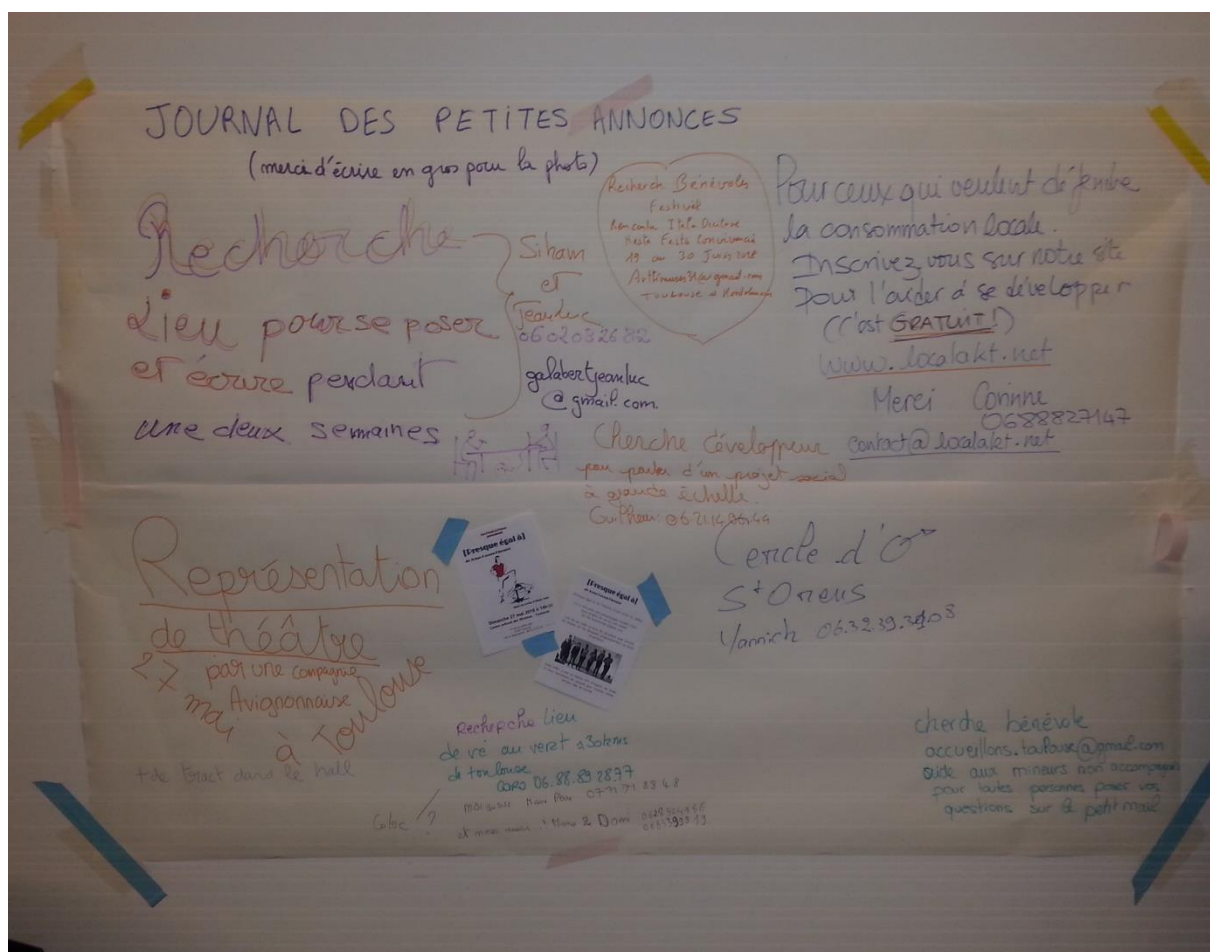 JOURNAL DES PETITES ANNONCES
(merci d'écrire en gros pour la photo)
Recherche
Lieu pour se poser
et écrire pendant
une deux semaines
Siham
et
Jeanluc
0602032682
galabertjeanluc
@gmail.com.
Recherch Bénévoles
Festival
19 au 30 Juin 2018
Pour ceux qui veulent défendre
la consommation locale.
Inscrivez vous sur notre site
pour l'aider à se développer
(c'est GRATUIT!)
www.localakt.net
Merci Corinne
0688827147
contact@localakt.net
Cherche développeur
pour parler d'un projet social
à grande échelle.
Guilhem: 06.21.14.06.49
Représentation
de théâtre
par une compagnie
Avignonnaise
27 mai à Toulouse
+ de tract dans le hall
[Presque égal à]
Dimanche 27 mai 2018 à 14h
[Presque égal à]
Cercle d'Or
St Orens
Yannick 06.32.39.
Recherche lieu
de vie au vert
de toulouse
CARO 06.88.89.28.77
Coloc !?
cherche bénévole
accueillons.toulouse@gmail.com
aide aux mineurs non accompagnés
pour toutes personnes poser vos
questions sur le petit mail